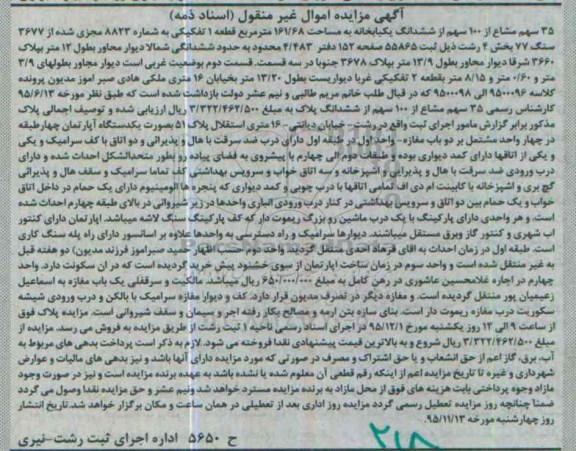 آگهی مزایده اموال غیر منقول (اسناد ذمه)
۳۵ سهم مشاع از ۱۰۰ سهم از ششدانگ یکبابخانه به مساحت ۱۶۱/۶۸ مترمربع قطعه ۱ تفکیکی به شماره ۸۸۲۳ مجزی شده از ۳۶۷۷
سنگ ۷۷ بخش ۴ رشت ذیل ثبت ۵۵۸۶۵ صفحه ۱۵۲ دفتر ۴/۴۸۳ محدود به حدود ششدانگی شمالا دیوار محاور بطول ۱۲ متر بپلاک
۳۶۶۰ شرقا دیوار محاور بطول ۱۳/۹ متر بپلاک ۳۶۷۸ جنوبا در سه قسمت. قسمت دوم بوضعیت غربی است دیوار محاور بطولهای ۳/۹
متر و ۰/۶۰ متر و ۸/۱۵ متر بقطعه ۲ تفکیکی غربا دیواریست بطول ۱۳/۲۰ متر بخیابان ۱۶ متری ملکی هادی صبر اموز مدیون پرونده
کلاسه ۹۵۰۰۰۹۶ الی ۹۵۰۰۰۹۸ که در قبال طلب خانم مریم طالبی و نیم عشر دولت بازداشت شده است که طبق نظر مورخه ۹۵/۶/۱۳
کارشناس رسمی ۳۵ سهم مشاع از ۱۰۰ سهم از ششدانگ پلاک به مبلغ ۳/۳۲۲/۴۶۲/۵۰۰ ریال ارزیابی شده و توصیف اجمالی پلاک
مذکور برابر گزارش مامور اجرای ثبت واقع در رشت - خیابان دیانتی - ۱۶ متری استقلال پلاک ۵۱ بصورت یکدستگاه آپارتمان چهارطبقه
در چهار واحد مشتمل بر دو باب مغازه - واحد اول در طبقه اول دارای درب ضد سرقت با هال و پذیرائی و دو اتاق با کف سرامیک و یکی
و یکی از اتاقها دارای کمد دیواری بوده و طبقات دوم الی چهارم با پیشروی به فضای پیاده رو بطور متحدالشکل احداث شده و دارای
درب ورودی ضد سرقت با هال و پذیرایی و آشپزخانه و سه اتاق خواب و سرویس بهداشتی کف تماما سرامیک و سقف هال و پذیرائی
گچ بری و اشپزخانه با کابینت ام دی اف تمامی اتاقها با درب چوبی و کمد دیواری که پنجره ها الومینیوم دارای یک حمام در داخل اتاق
خواب و یک حمام بین دو اتاق و سرویس بهداشتی در کنار درب ورودی انباری واحدها در زیر شیروانی در بالای طبقه چهارم احداث شده
است. و هر واحدی دارای پارکینگ با یک درب ماشین رو بزرگ ریموت دار که کف پارکینگ سنگ لاشه میباشد. اپارتمان دارای کنتور
اب شهری و کنتور گاز وبرق مستقل میباشند. دیوارها سرامیک و راه دسترسی به واحدها علاوه بر اسانسور دارای راه پله سنگ کاری
است. طبقه اول در زمان احداث به اقای فرهاد احدی منتقل گردید. واحد دوم حسب اظهار حمید صبراموز فرزند مدیون) دو هفته قبل
به غیر منتقل شده است و واحد سوم در زمان ساخت اپارتمان از سوی خشنود پیش خرید گردیده است که در ان سکونت دارد. واحد
چهارم در اجاره غلامحسین عاشوری در رهن کامل به مبلغ ۶۵۰/۰۰۰/۰۰۰ ریال میباشد. مالکیت و سرقفلی یک باب مغازه به اسماعیل
زعیمیان پور منتقل گردیده است. و مغازه دیگر در تصرف مدیون قرار دارد. کف و دیوار مغازه سرامیک با بالکن و درب ورودی شیشه
سکوریت درب مغازه ریموت دار است. بنای سازه بتن ارمه و مصالح بکار رفته اجر و سیمان و سقف شیروانی است. مزایده پلاک فوق
از ساعت ۹ الی ۱۲ روز یکشنبه مورخ ۹۵/۱۲/۱ در اجرای اسناد رسمی ناحیه ۱ ثبت رشت از طریق مزایده به فروش می رسد. مزایده از
مبلغ ۳/۳۲۲/۴۶۲/۵۰۰ ریال شروع و به بالاترین قیمت پیشنهادی نقدا فروخته می شود. لازم به ذکر است پرداخت بدهی های مربوط به
آب، برق، گاز اعم از حق انشعاب و یا حق اشتراک و مصرف در صورتی که مورد مزایده دارای آنها باشد و نیز بدهی های مالیات و عوارض
شهرداری و غیره تا تاریخ مزایده اعم از اینکه رقم قطعی آن معلوم شده یا نشده باشد به عهده برنده مزایده است و نیز در صورت وجود
مازاد وجوه پرداختی بابت هزینه های فوق از محل مازاد به برنده مزایده مسترد خواهد شد ونیم عشر و حق مزایده نقدا وصول می گردد
ضمنا چنانچه روز مزایده تعطیل رسمی گردد مزایده روز اداری بعد از تعطیلی در همان ساعت و مکان برگزار خواهد شد. تاریخ انتشار
روز چهارشنبه مورخه ۹۵/۱۱/۱۳
ح ۵۶۵۰ اداره اجرای ثبت رشت-نیری
۲۱۸